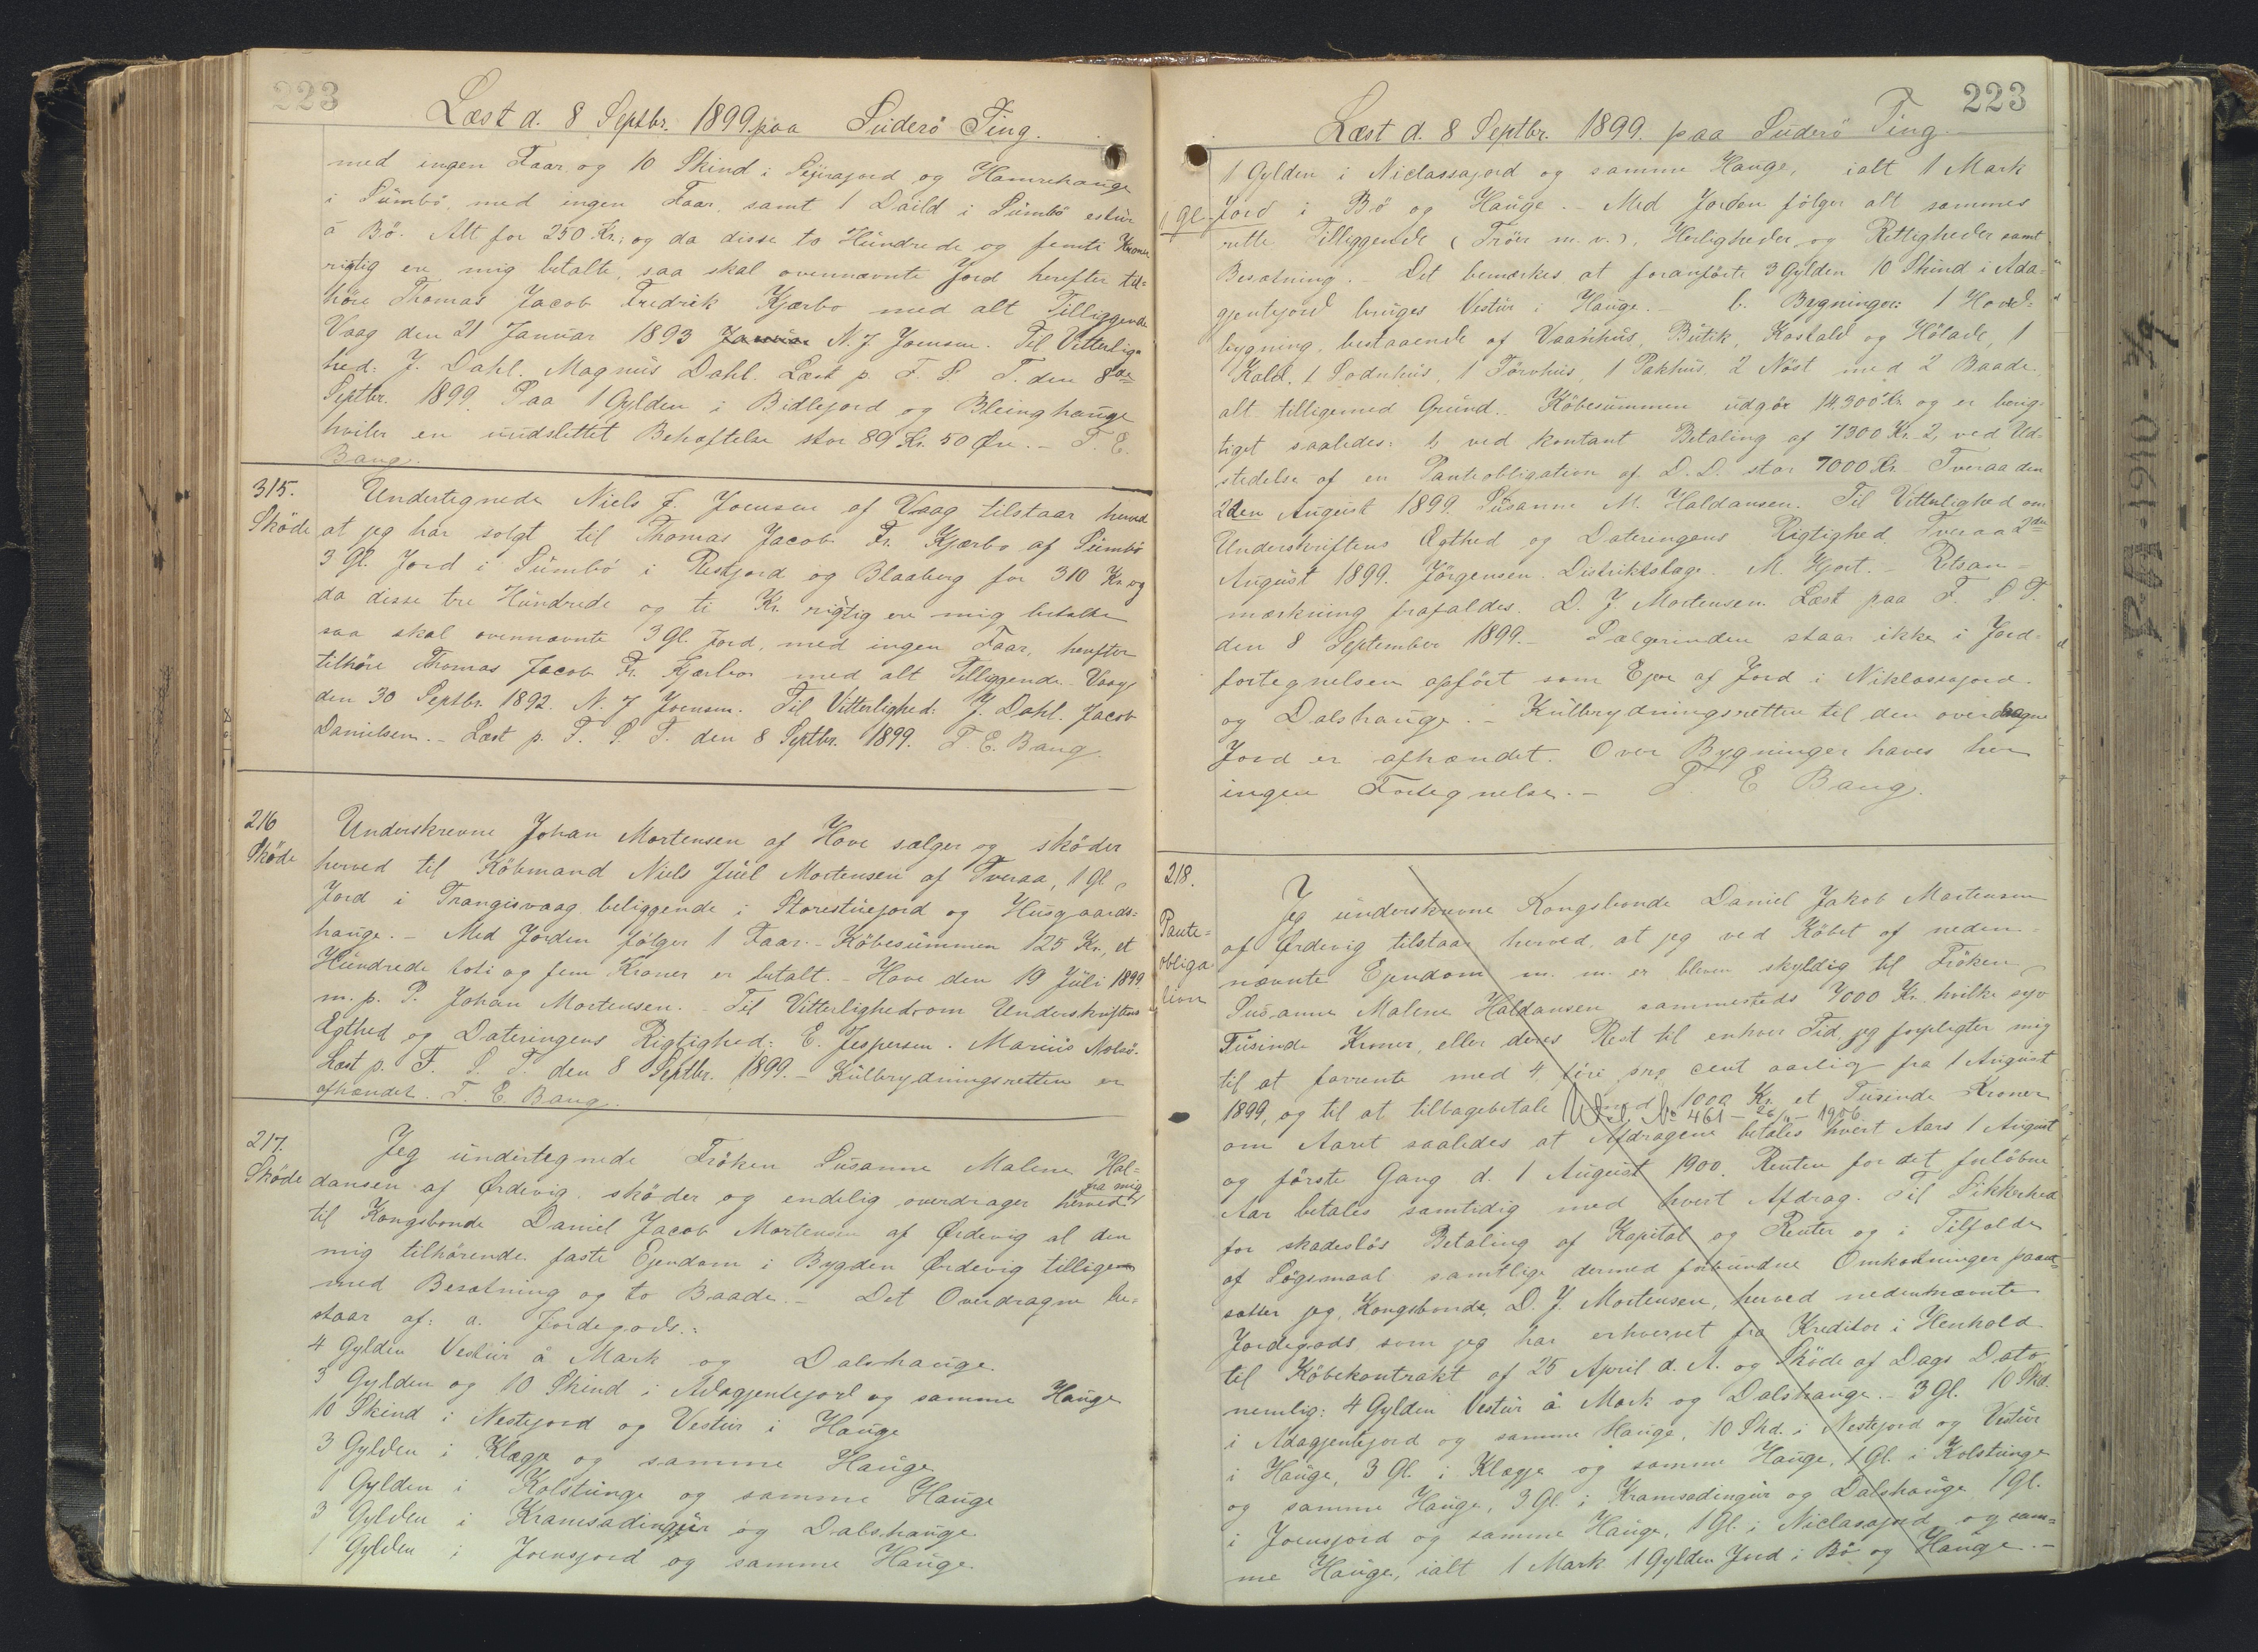 223
Læst d. 8 Septbr. 1899 paa Suderö Ting.
med ingen Faar, og 10 Skind i Sejrajord og Hamrehauge
i Sumbö, med ingen Faar, samt 1 Daild i Sumbö estur
á Bö. Alt for 250 Kr.; og da disse to Hundrede og femti Kroner
rigtig ere mig betalte, saa skal ovennævnte Jord herefter til=
höre Thomas Jacob Fredrik Kjærbo med alt Tilliggende
Vaag den 21 Januar 1893 N. J. Joensen. Til Vitterlig=
hed: J. Dahl. Magnus Dahl. Læst p. F. S. T. den 8de
Septbr. 1899. Paa 1 Gylden i Bidlejord og Bleinghauge
hviler en uudslettet Behæftelse stor 89 Kr. 50 Øre. - T. E.
Bang.
315.
Sköde
Undertegnede Niels J. Joensen af Vaag tilstaar herved
at jeg har solgt til Thomas Jacob Fr. Kjærbo af Sumbö
3 Gl. Jord i Sumbö i Reskjord og Blaaberg for 310 Kr. og
da disse tre Hundrede og ti Kr. rigtig ere mig betalte
saa skal ovennævnte 3 Gl. Jord, med ingen Faar, herefter
tilhöre Thomas Jacob Fr. Kjærbo med alt Tilliggende. Vaag
den 30 Septbr. 1892. N. J. Joensen. Til Vitterlighed: J. Dahl. Jacob
Danielsen. - Læst p. F. S. T. den 8 Septbr. 1899. T. E. Bang.
216
Sköde
Underskrevne Johan Mortensen af Hove sælger og sköder
herved til Köbmand Niels Juel Mortensen af Tveraa, 1 Gl.
Jord i Trangisvaag beliggende i Storestuejord og Husgaards=
hauge. - Med Jorden fölger 1 Faar. - Köbesummen 125 Kr., et
Hundrede toti og fem Kroner er betalt. - Hove den 19 Juli 1899.
m. p. P. Johan Mortensen. - Til Vitterlighed om Underskriftens
Ægthed og Dateringens Rigtighed: E. Jespersen. Marius Nolsö.
Læst p. F. S. T. den 8 Septbr. 1899. - Kulbrydningsretten er
afhændet. T. E. Bang.
217.
Sköde
Jeg undertegnede Fröken Susanne Malene Hal=
dansen af Ørdevig, sköder og endelig overdrager herved fra mig
til Kongsbonde Daniel Jacob Mortensen af Ørdevig al den
mig tilhörende faste Ejendom i Bygden Ørdevig tillige
med Besætning og to Baade. - Det Overdragne be=
staar af: a. Jordegods:
4 Gylden Vestur á Mark og Dalshauge
3 Gylden og 10 Skind i Adagjentejord og samme Hauge
10 Skind i Nestejord og Vestur i Hauge
3 Gylden i Klægje og samme Hauge
1 Gylden i Kolstunge og samme Hauge
3 Gylden i Kramsadingur og Dalshauge
1 Gylden i Joensjord og samme Hauge
223
Læst d. 8 Septbr. 1899. paa Suderö Ting.
1 Gylden i Niclassajord og samme Hauge, ialt 1 Mark
1 Gl. Jord i Bö og Hauge. - Med Jorden fölger alt sammes
rette Tilliggende (Tröer m. v.), Herligheder og Rettigheder samt
Besætning. - Det bemærkes at foranförte 3 Gylden 10 Skind i Ada=
gjentejord bruges Vestur i Hauge. - b. Bygninger: 1 Hoved=
bygning, bestaaende af Vaanhus, Butik, Kostald og Hölade, 1
Kald. 1 Sodnhus, 1 Törvhus, 1 Pakhus, 2 Nöst med 2 Baade,
alt tilligemed Grund. Köbesummen udgör 14,300 Kr. og er berig=
tiget saaledes: 1, ved kontant Betaling af 7300 Kr. 2, ved Ud=
stedelse af en Panteobligation af D. D. stor 7000 Kr. Tveraa den
2den August 1899. Susanne M. Haldansen. Til Vitterlighed om
Underskriftens Ægthed og Dateringens Rigtighed. Tveraa 2den
August 1899. Jörgensen. Distriktslæge. M. Hjort. -
mærkning frafaldes. D. J. Mortensen. Læst paa F. S. T.
den 8 September 1899. - Sælgerinden staar ikke i Jord=
fortegnelsen opfört som Ejer af Jord i Niklassajord
og Dalshauge. - Kulbrydningsretten til den overdragne
Jord er afhændet. Over Bygninger haves her
ingen Fortegnelse. - T. E. Bang.
218.
Pante=
obliga=
tion
Jeg underskrevne Kongsbonde Daniel Jakob Mortensen
af Ørdevig tilstaar herved, at jeg ved Köbet af neden=
nævnte Ejendom m. m. er bleven skyldig til Fröken
Susanne Malene Haldansen sammesteds 7000 Kr. hvilke syv
Tusinde Kroner, eller deres Rest til enhver Tid, jeg forpligter mig
til at forrente med 4, fire pro cent aarlig fra 1 August
1899, og til at tilbagebetale med 1000 Kr. et Tusinde Kroner
Udsl. No 461 - 26/11 - 1906.
om Aaret saaledes at Afdragene betales hvert Aars 1 August
og förste Gang d. 1 August 1900. Renten for det forlöbne
Aar betales samtidig med hvert Afdrag. Til Sikkerhed
for skadeslös Betaling af Kapital og Renter og i Tilfælde
af Sögsmaal samtlige dermed forbundne Omkostninger pant=
sætter jeg, Kongsbonde D. J. Mortensen, herved nedennævnte
Jordegods som jeg har erhvervet fra Kreditor i Henhold
til Köbekontrakt af 25 April d. A. og Sköde af Dags Dato
nemlig: 4 Gylden Vestur á Mark og Dalshauge. - 3 Gl. 10 Skd.
i Adagjentejord og samme Hauge, 10 Skd. i Nestejord og Vestur
i Hauge, 3 Gl. i Klægje og samme Hauge, 1 Gl. i Kolstunge
og samme Hauge, 3 Gl. i Kramsadingur og Dalshauge 1 Gl.
i Joensjord og samme Hauge, 1 Gl. i Niclassajord og sam=
me Hauge, ialt 1 Mark 1 Gylden Jord i Bö og Hauge. -